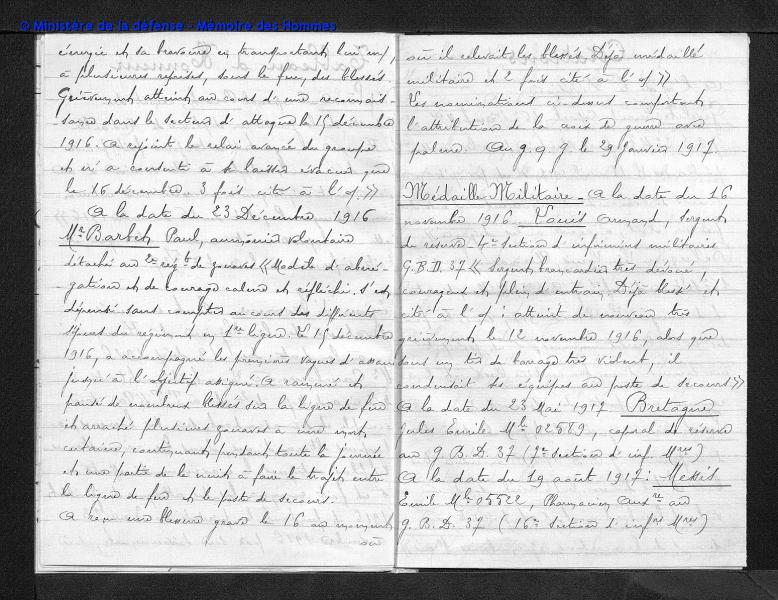 © Ministère de la défense - Mémoire des Hommes
énergie et sa bravoure en transportant lui m/,
à plusieurs reprises, sous le feu, des blessés.
Grièvement atteint au cours d'une reconnais-
sance dans le secteur d'attaque le 15 décembre
1916. A rejoint le relai avancé du groupe
et n'a consenti à se laisser évacuer que
le 16 décembre. 3 fois cité à l'o/. »
A la date du 23 Décembre 1916
Mr Barbet Paul, aumônier volontaire
détaché au 2e régt de zouaves « Modèle d'abné-
gation et de courage calme et réfléchi. S'est
dépensé sans compter au cours des différents
séjours du régiment en 1ère ligne. Le 15 décembre
1916, a accompagné les premières vagues d'assaut
jusqu'à l'objectif assigné. A ramené et
pansé de nombreux blessés sur la ligne de feu
et arraché plusieurs zouaves à une mort
certaine, continuant pendant toute la journée
et une partie de la nuit à faire le trajet entre
la ligne de feu et le poste de secours.
A reçu une blessure grave le 16 au moment
où
où il relevait les blessés. Déjà médaillé
militaire et 2 fois cité à l'o/ »
Les nominations ci-dessus comportent
l'attribution de la croix de guerre avec
palme. Au g. q. g. le 29 Janvier 1917.
Médaille Militaire - A la date du 16
novembre 1916 Louis Armand, sergent
de réserve - 4e section d'infirmiers militaires
G.B.D. 37 « Sergent brancardier très dévoué,
courageux et plein d'entrain. Déjà blessé et
cité à l'o/ ; atteint de nouveau très
grièvement le 12 novembre 1916, alors que
sous un tir de barrage très violent, il
conduisait ses équipes au poste de secours »
A la date du 23 Mai 1917 Bretagne
Jules Emile Mle 02589, caporal de réserve
au g. B. D. 37 (7e section d'inf. Mres)
A la date du 19 août 1917 : Messis
Emile Mle 05522, Pharmacien Auxre au
g. B. D. 37 (16e Section d'infrs Mres)